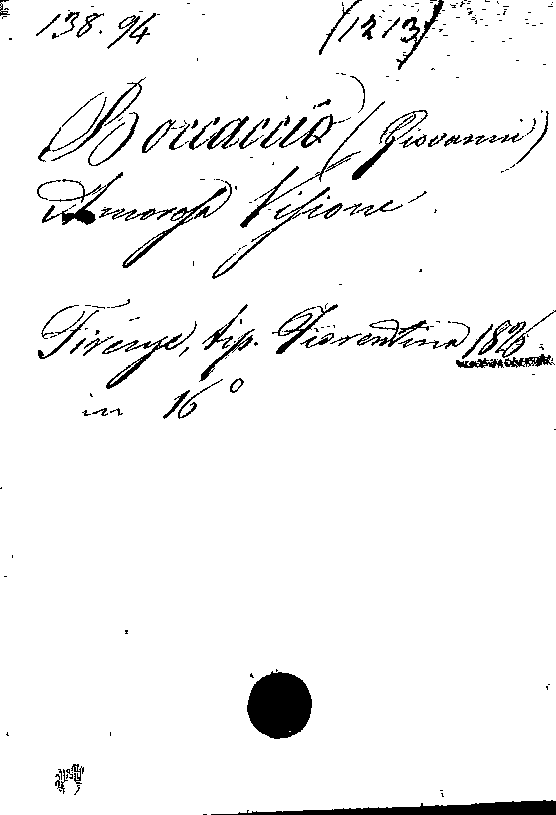 138.94 (1213)
Boccaccio (Giovanni)
Amorosa Visione.
Firenze, tip. Fiorentina 1826
in 16°